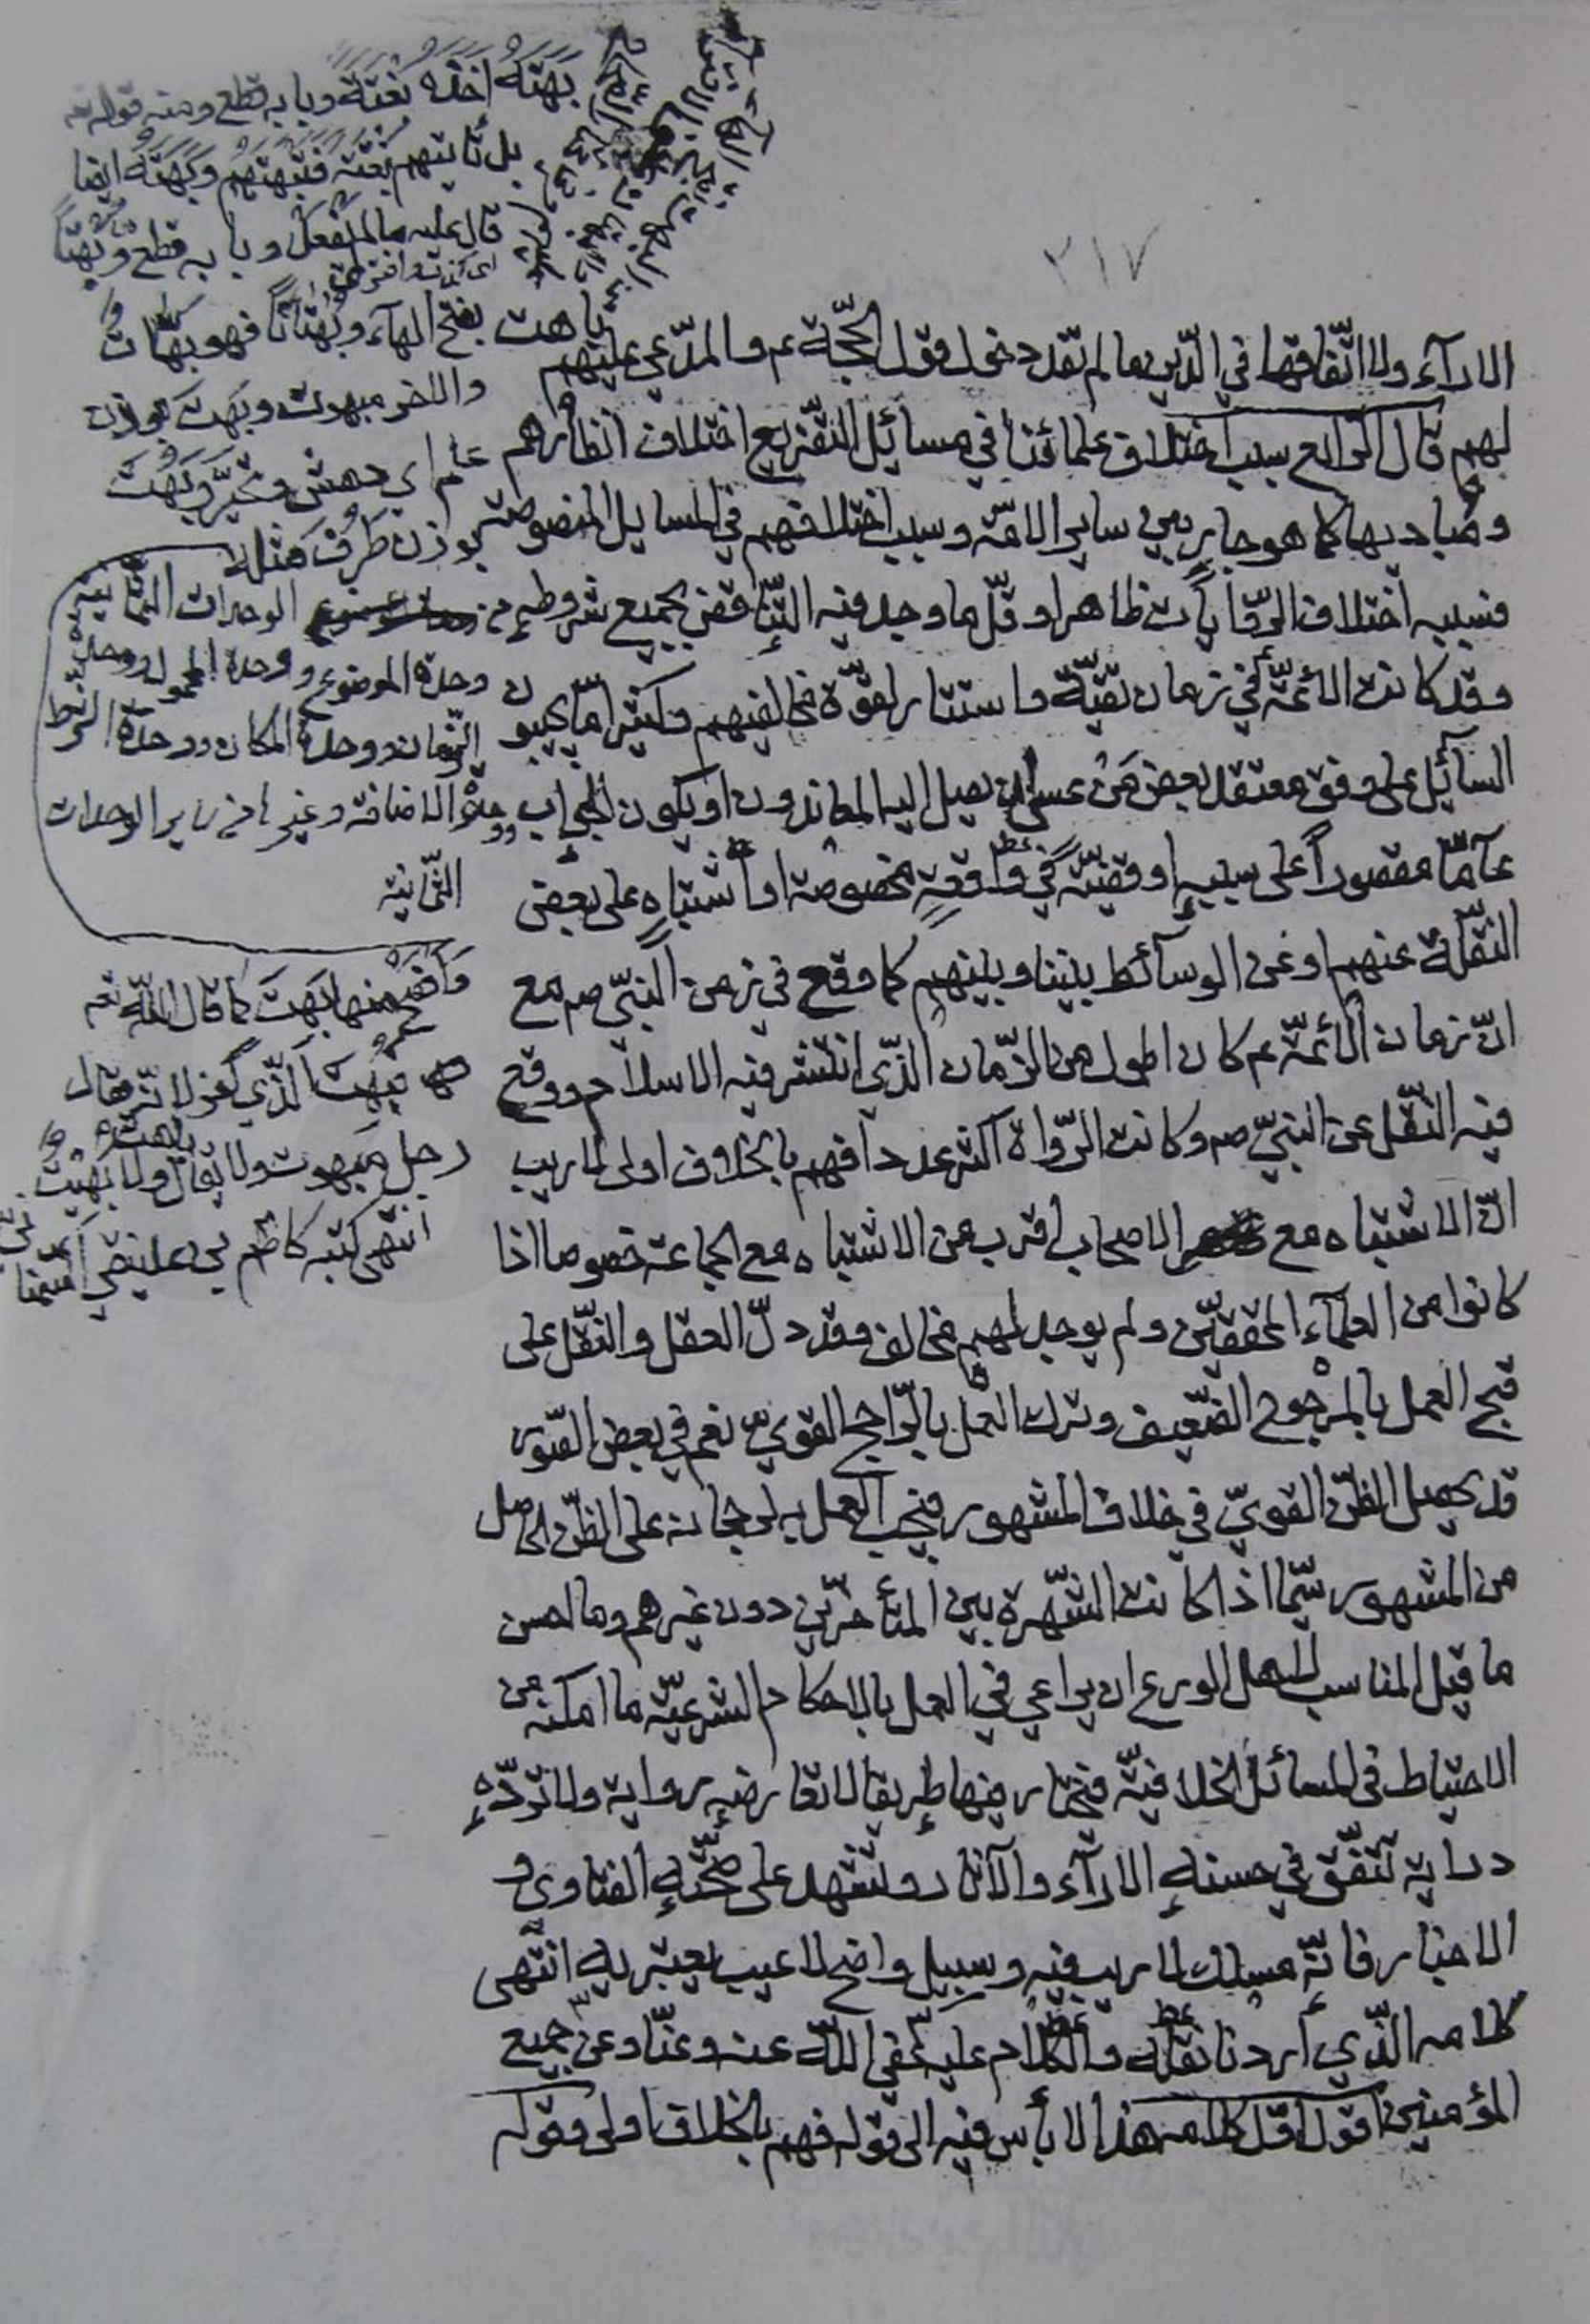 ٣١٧
الاراء ولا اتّفاقها في الدّين ما لم تقد دخول قول الحجّة عم والمدّعي عليهم
لهم قال الرّابع سبب اختلاف علمائنا في مسائل التّفريع اختلاف انظارهم
ومباديها كما هو جار بين ساير الامّة وسبب اختلافهم في المسايل المنصوصة
فسببه اختلاف الرّوايات ظاهرا وقلّما وجد فيه التّناقض بجميع شروطه
وقد كانت الأئمّة في زمان تقيّة واستتار لقوّة مخالفيهم وكثيرا مّا يجيبون
السآئل على وفق معتقد بعض من عسى ان يصل اليه المعاندون او يكون الجواب
عامّا مقصوراً على سببه او قضيّة في واقعة مخصوصة او اشتباه على بعض
النّقلة عنهم او عن الوسآئط بيننا وبينهم كما وقع في زمن النّبيّ صم مع
انّ زمان الأئمّة عم كان اطول من الزّمان الّذي انتشر فيه الاسلام ووقع
فيه النّقل عن النّبيّ صم وكانت الرّواة اكثر عددا فهم بالخلاف اولى لا ريب
انّ الاشتباه مع الاصحاب اقرب من الاشتباه مع الجماعة خصوصا اذا
كانوا من العلمآء المحقّقين ولم يوجد لهم مخالف وقد دلّ العقل والنّقل على
قبح العمل بالمرجوح الضّعيف وترك العمل بالرّاجح القويّ نعم في بعض الصّور
قد يحصل الظّنّ القويّ في خلاف المشهور فيجب العمل به لرجحانه على الظّنّ الحاصل
من المشهور سيّما اذا كانت الشّهرة بين المتأخّرين دون غيرهم وما احسن
ما قيل المناسب لاهل الورع ان يراعي في العمل بالاحكام الشرعيّة ما امكنه من
الاحتياط في المسائل الخلافيّة فيختار فيها طريقا لا تعارضه رواية ولا تردّه
دراية تتّفق في حسنه الارآء والآثار وتشهد على صحّته الفتاوى و
الاخبار فانّه مسلك لا ريب فيه وسبيل واضح لا عيب يعتريه انتهى
كلامه الّذي اردنا نقله والكلام عليه عفى اللّه عنه وعنّا وعن جميع
المؤمنين اقول اوّل كلامه هذا لا بأس فيه الى قوله فهم بالخلاف اولى وقوله
بَهَتَهُ اخذه بَغْتَةً وبابه قطع ومنه قوله تعـ
بل تأتيهم بَغْتَةً فتَبْهَتُهُم وبَهَتَهُ ايضا
قال عليه ما لم يفعل وبابه قطع وبَهْتاً
اى كذب وافترى
باهت بفتح الهآء وبُهْتاناً فهو بَهّات
والاخر مبهوت وبَهِت بوزن
علم اي دهش وتحيّر وبَهُتَ
بوزن ظَرُفَ مثله
الوحدات الثّمانية
وحدة الموضوع ووحدة المحمول ووحدة
الزّمان ووحدة المكان ووحدة الشرط
ووحدة الاضافة وغيرها من ساير الوحدات
الثّمانية
وافصح منهما بُهِتَ كما قال اللّه تعـ
فبُهِتَ الّذي كفر لانّه يقال
رجل مبهوت ولا يقال باهت ولا بَهِيت
انتهى كتبه كاظم بن علينقي